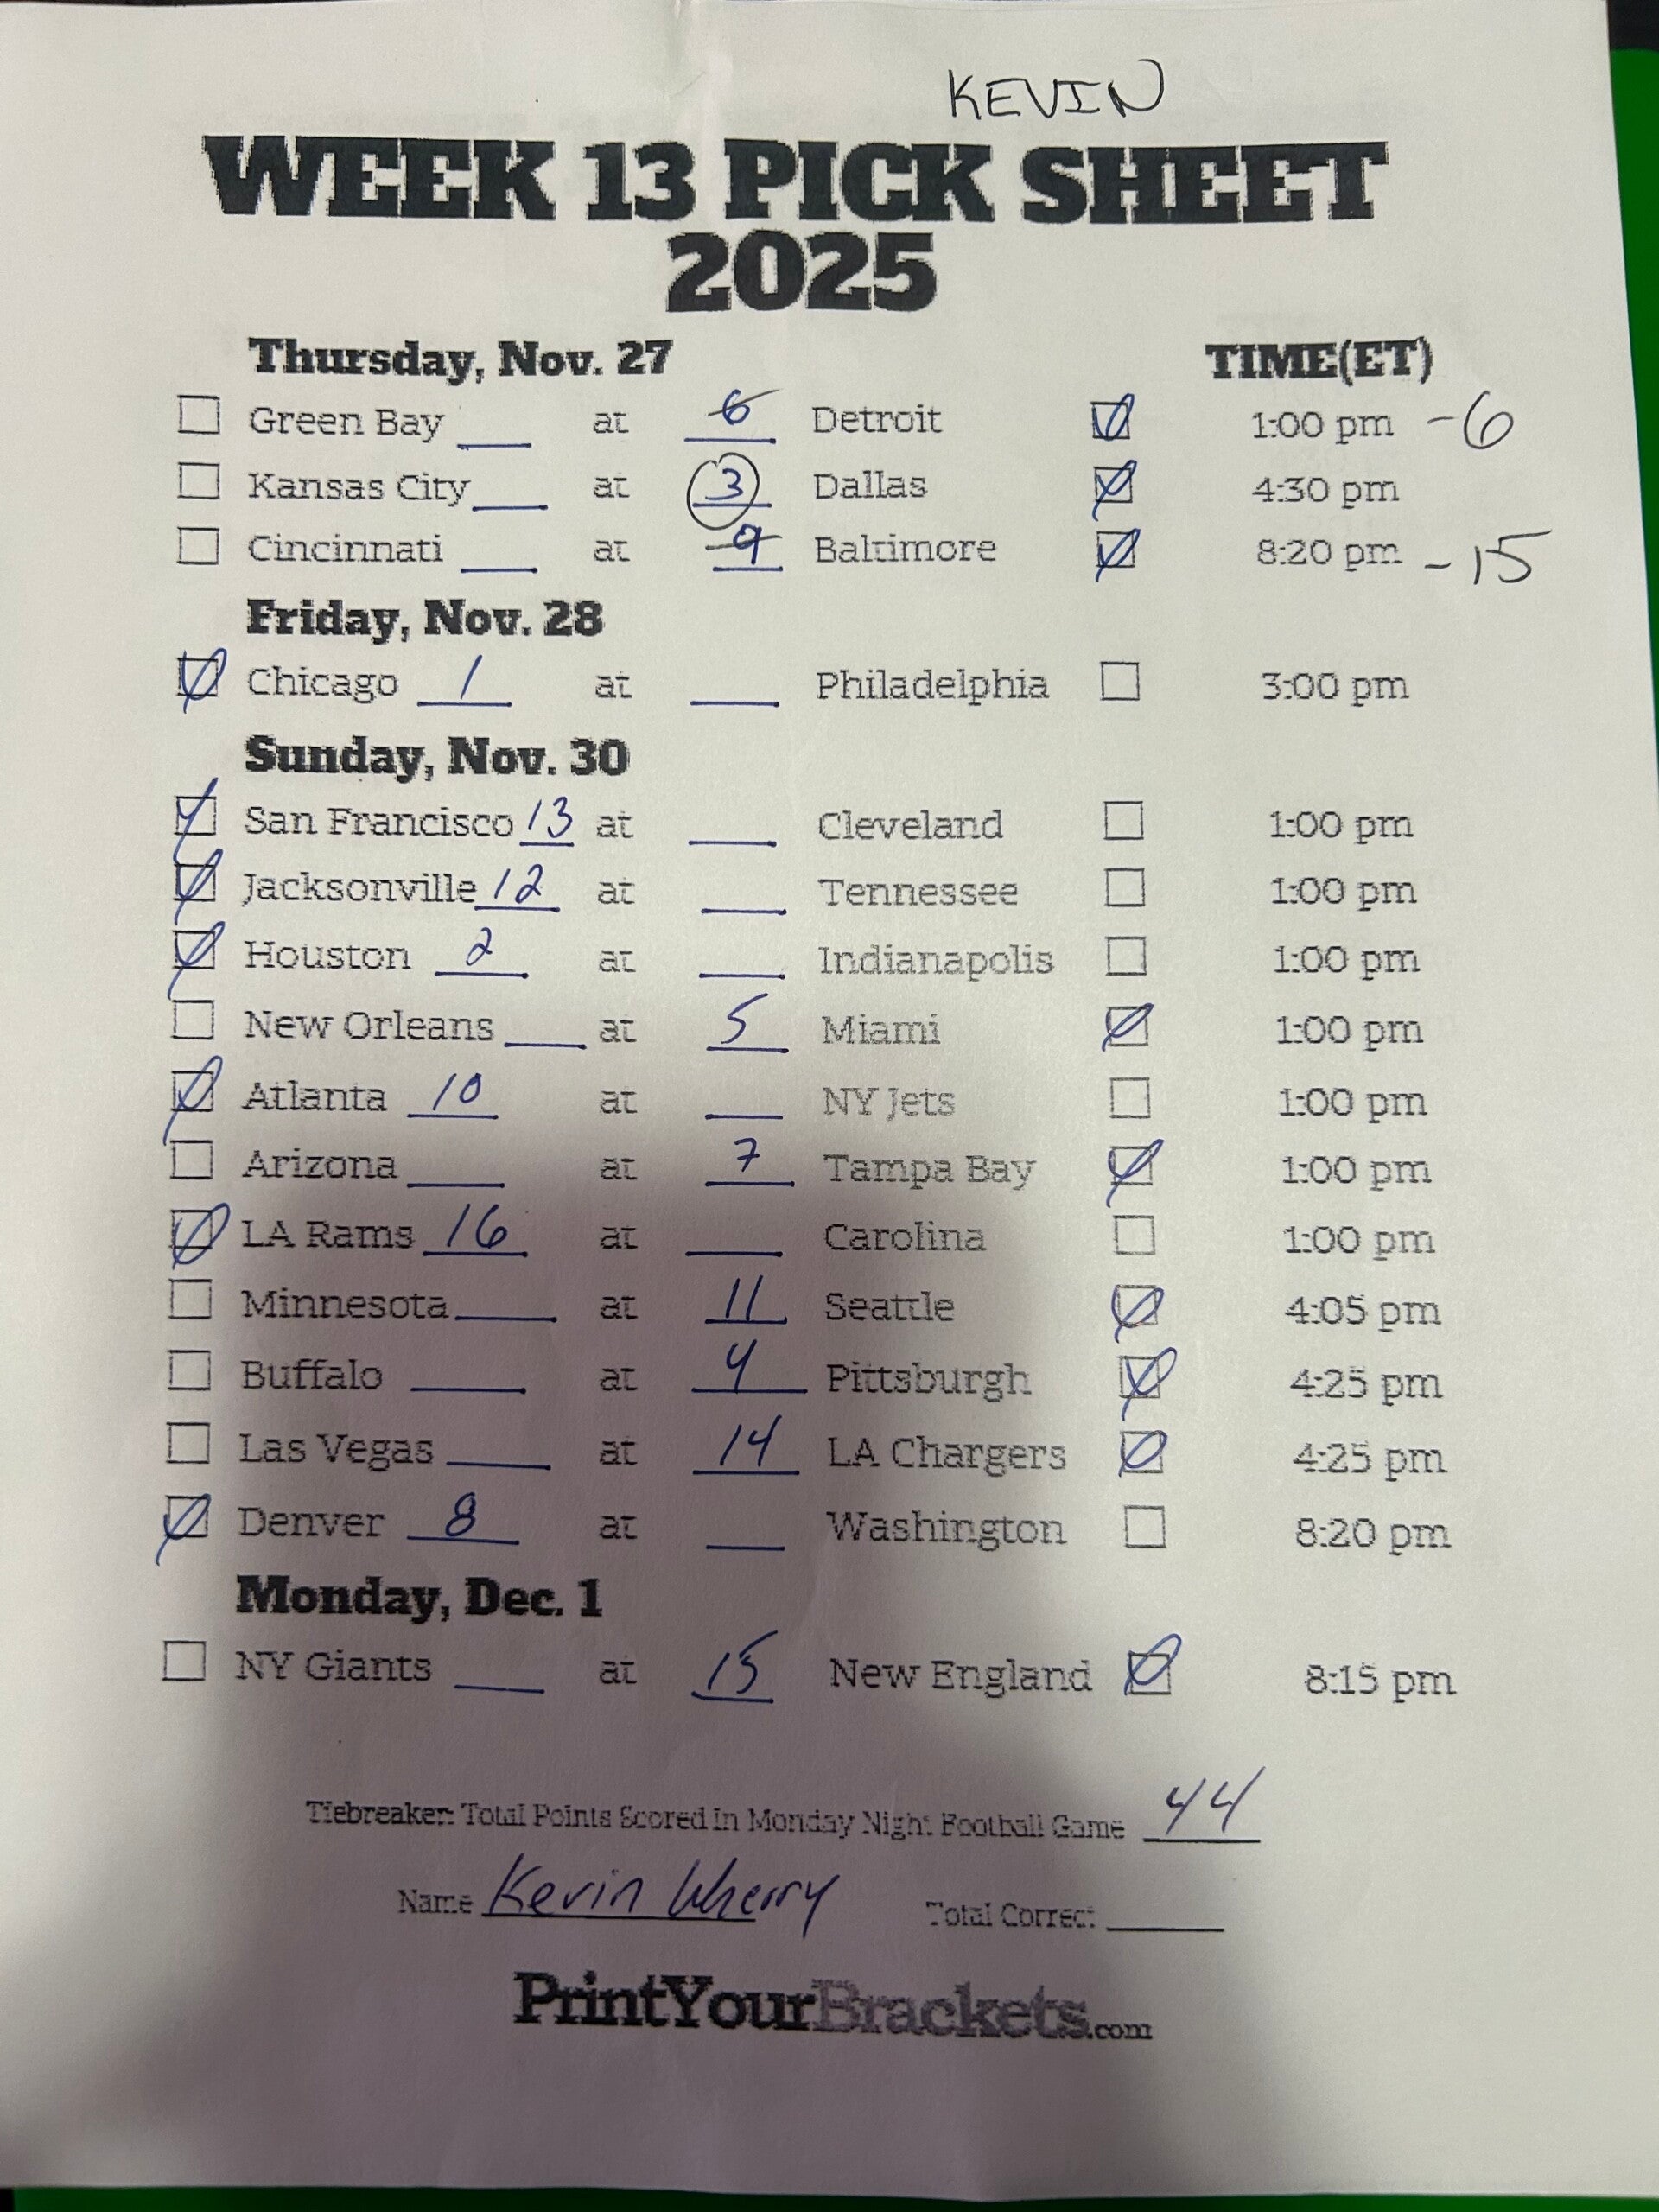 KEVIN
WEEK 13 PICK SHEET
2025
Thursday, Nov. 27 TIME(ET)
Green Bay ___ at 6 Detroit 1:00 pm -6
Kansas City ___ at 3 Dallas 4:30 pm
Cincinnati ___ at 9 Baltimore 8:20 pm -15
Friday, Nov. 28
Chicago 1 at ___ Philadelphia 3:00 pm
Sunday, Nov. 30
San Francisco 13 at ___ Cleveland 1:00 pm
Jacksonville 12 at ___ Tennessee 1:00 pm
Houston 2 at ___ Indianapolis 1:00 pm
New Orleans ___ at 5 Miami 1:00 pm
Atlanta 10 at ___ NY Jets 1:00 pm
Arizona ___ at 7 Tampa Bay 1:00 pm
LA Rams 16 at ___ Carolina 1:00 pm
Minnesota ___ at 11 Seattle 4:05 pm
Buffalo ___ at 4 Pittsburgh 4:25 pm
Las Vegas ___ at 14 LA Chargers 4:25 pm
Denver 8 at ___ Washington 8:20 pm
Monday, Dec. 1
NY Giants ___ at 15 New England 8:15 pm
Tiebreaker: Total Points Scored In Monday Night Football Game 44
Name Kevin Wherry Total Correct ___
PrintYourBrackets.com